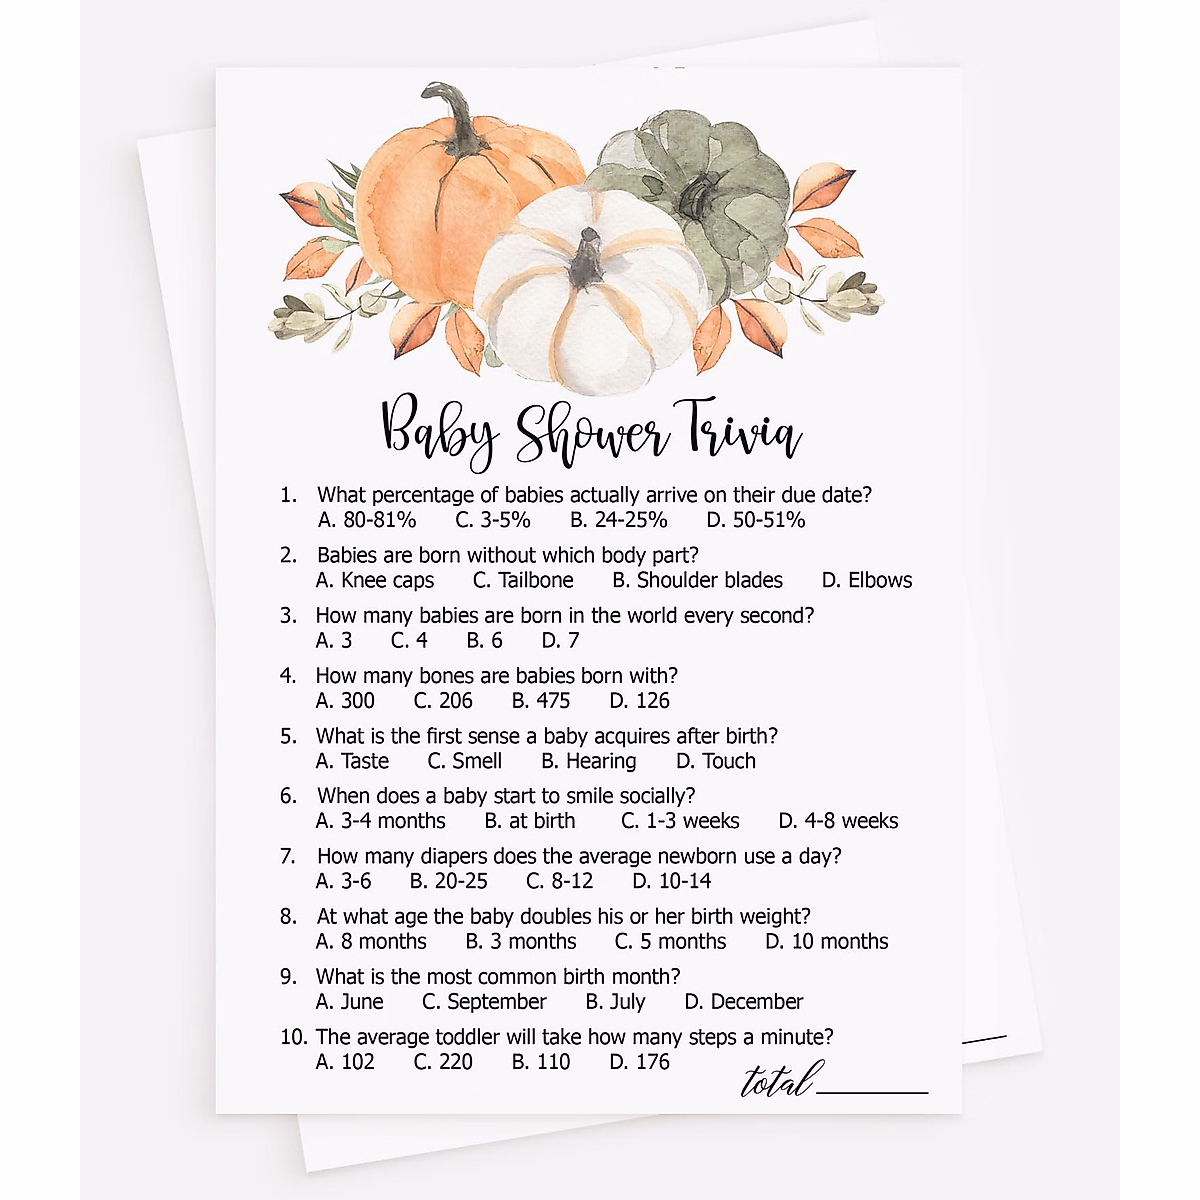 Baby Shower Trivia
1. What percentage of babies actually arrive on their due date?
A. 80-81% C. 3-5% B. 24-25% D. 50-51%
2. Babies are born without which body part?
A. Knee caps C. Tailbone B. Shoulder blades D. Elbows
3. How many babies are born in the world every second?
A. 3 C. 4 B. 6 D. 7
4. How many bones are babies born with?
A. 300 C. 206 B. 475 D. 126
5. What is the first sense a baby acquires after birth?
A. Taste C. Smell B. Hearing D. Touch
6. When does a baby start to smile socially?
A. 3-4 months B. at birth C. 1-3 weeks D. 4-8 weeks
7. How many diapers does the average newborn use a day?
A. 3-6 B. 20-25 C. 8-12 D. 10-14
8. At what age the baby doubles his or her birth weight?
A. 8 months B. 3 months C. 5 months D. 10 months
9. What is the most common birth month?
A. June C. September B. July D. December
10. The average toddler will take how many steps a minute?
A. 102 C. 220 B. 110 D. 176
total